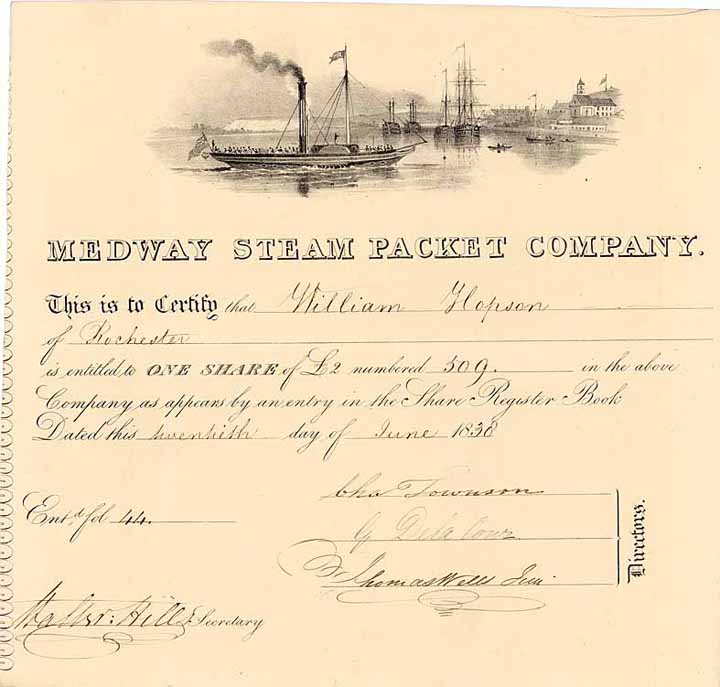 MEDWAY STEAM PACKET COMPANY.
This is to Certify that William Hopson
of Rochester
is entitled to ONE SHARE of £2 numbered 509. in the above
Company as appears by an entry in the Share Register Book
Dated this twentieth day of June 1838
Cha Townson
Ent.d fol 44.
G Dela Cour
Thomas Wells Jun.
Directors.
Walter Hills Secretary